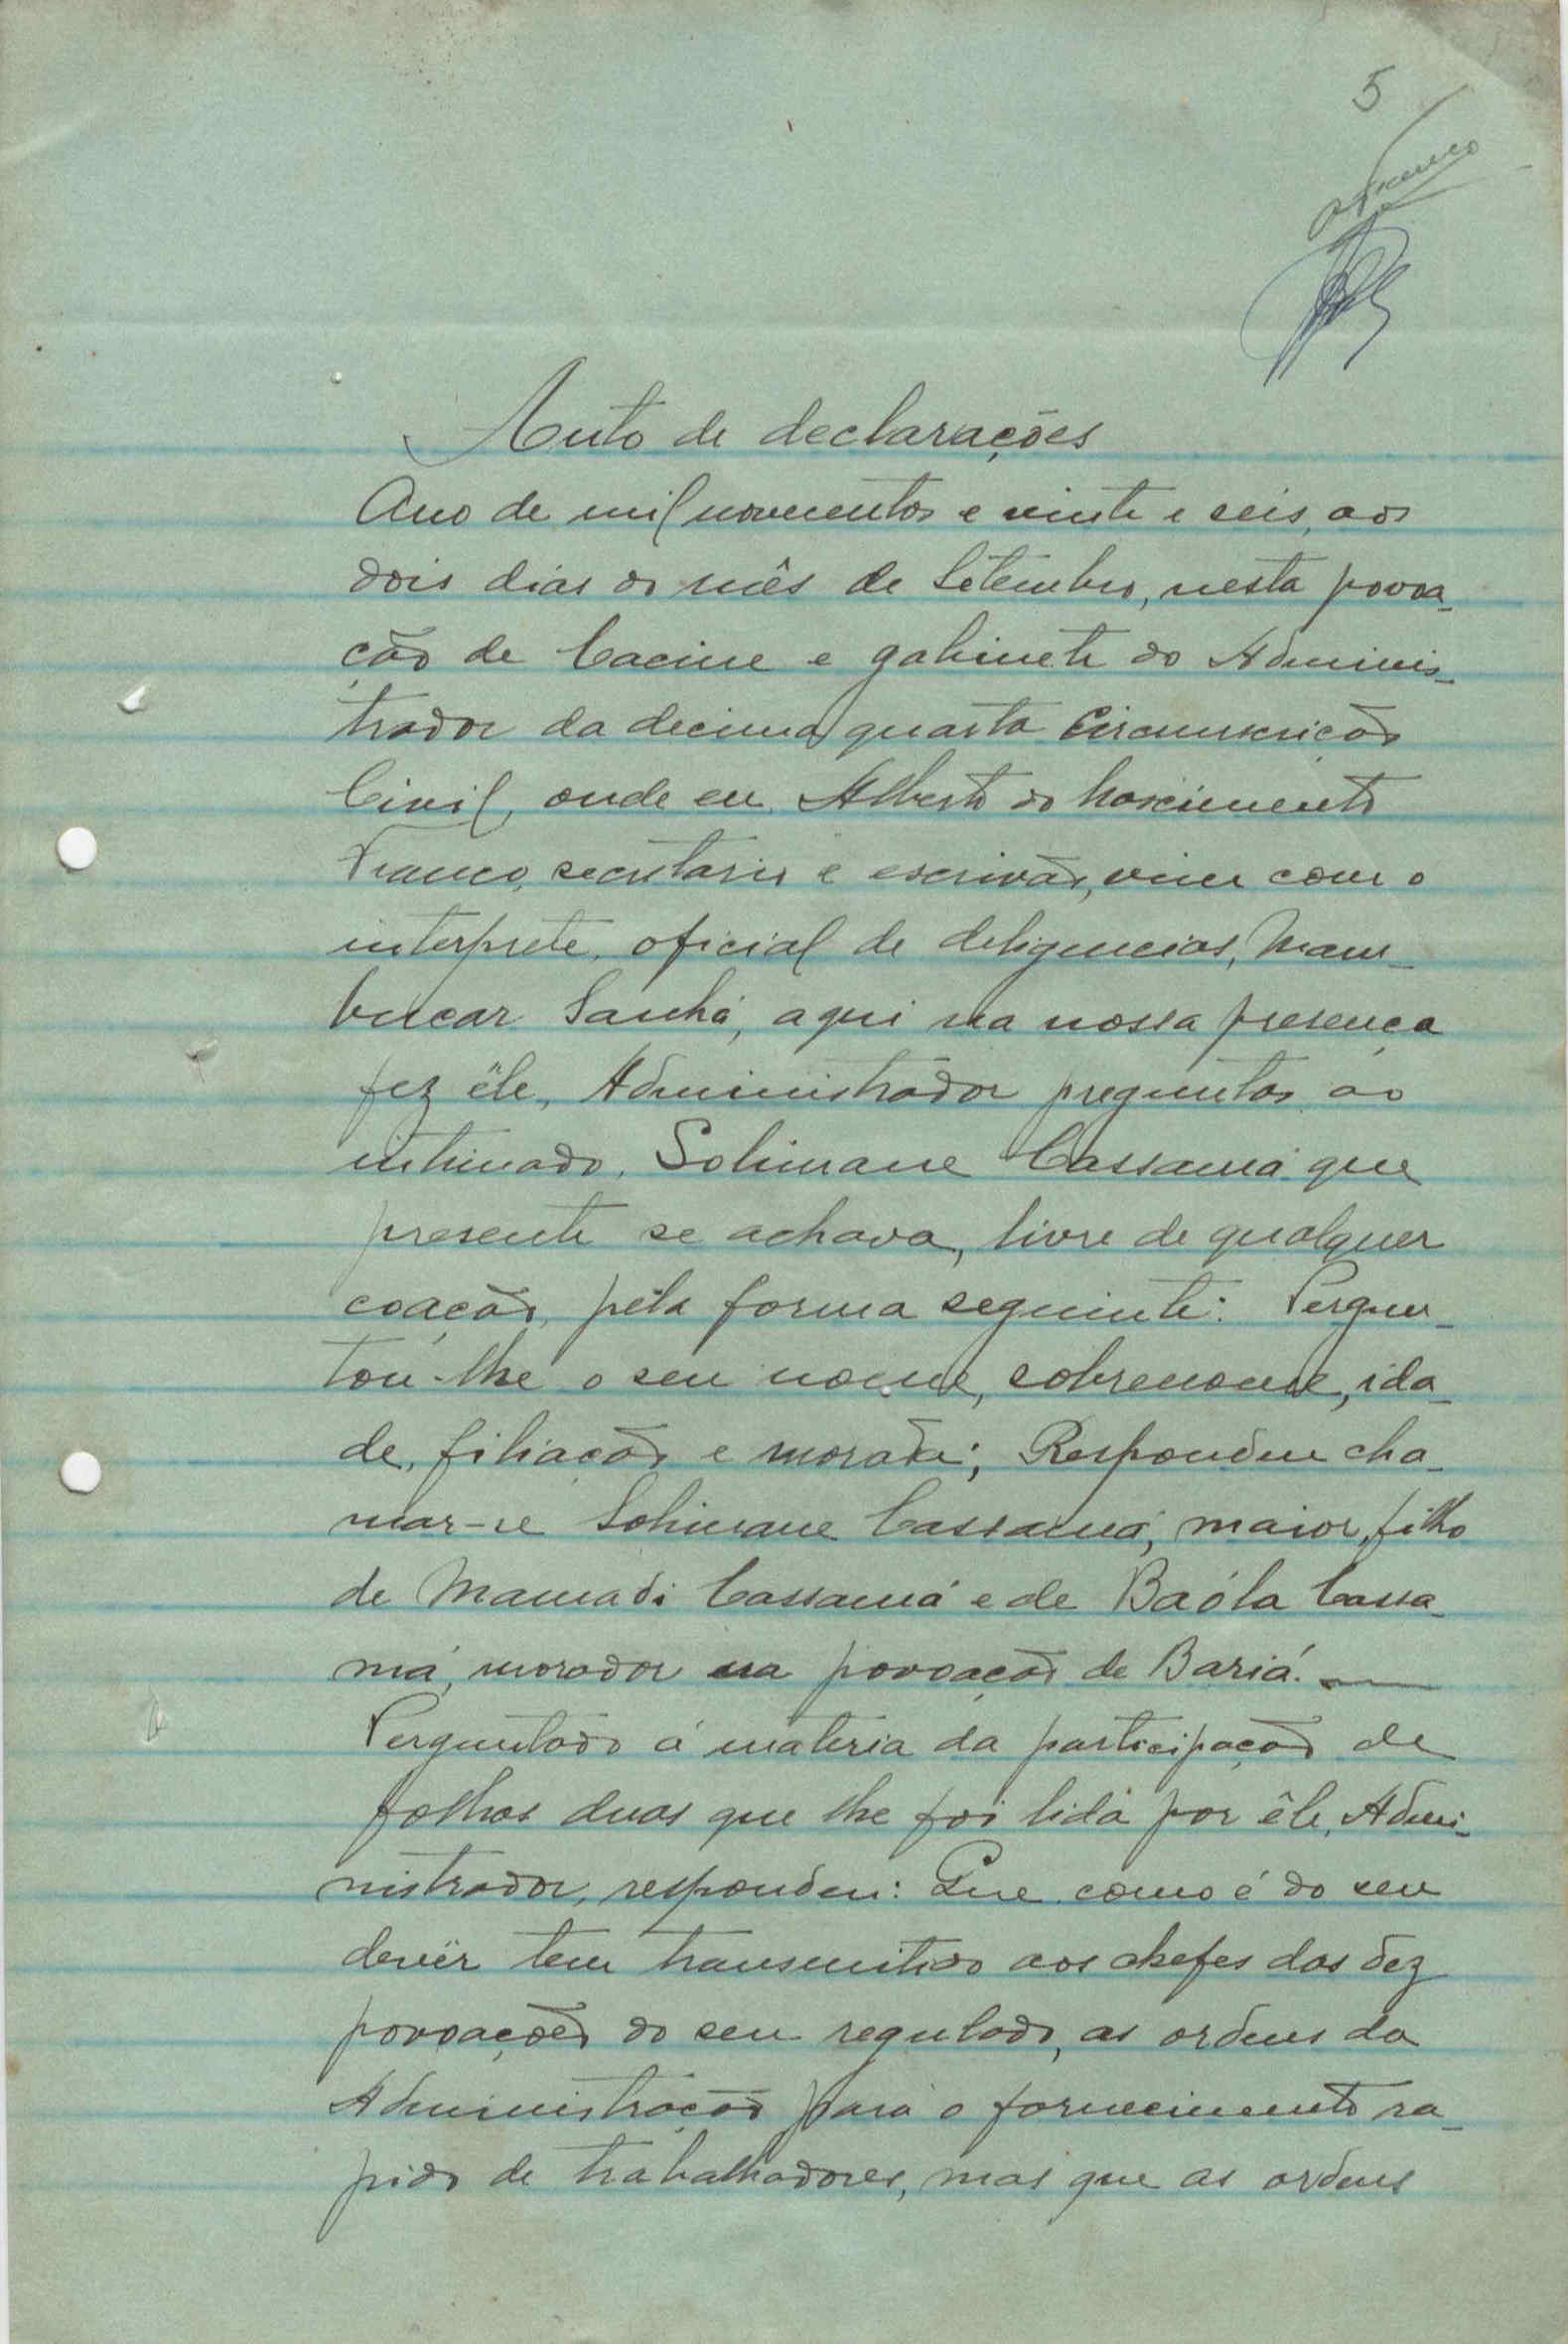 5
AFranco
Auto de declarações
Ano de mil novecentos e vinte e seis, aos
dois dias do mês de Setembro, nesta povoa-
ção de Cacine e gabinete do Adminis-
trador da decima quarta Circunscrição
Civil, onde eu Alberto do Nascimento
Franco, secretario e escrivão, vim com o
interprete, oficial de deligencias, Mam-
bucar Sanhá, aqui na nossa presença
fez êle, Administrador preguntas ao
intimado, Solimane Cassamá que
presente se achava, livre de qualquer
coação, pela forma seguinte: Pergun-
tou-lhe o seu nome, sobrenome, ida-
de, filiação e morada; Respondeu cha-
mar-se Solimane Cassamá, maior, filho
de Mamadi Cassamá e de Baóla Cassa-
má, morador na povoação de Bariá.
Perguntado á materia da participação de
folhas duas que lhe foi lida por êle, Admi-
nistrador, respondeu: Que como é do seu
devêr tem transmitido aos chefes das dez
povoações do seu regulado, as ordens da
Administração para o fornecimento ra-
pido de trabalhadores, mas que as ordens